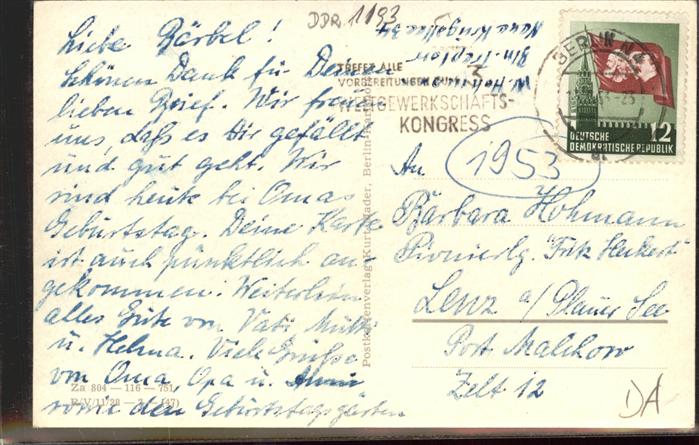 DDR 1193
Liebe Bärbel!
Schönen Dank für Deinen
lieben Brief. Wir freuen
uns, daß es Dir gefällt
und gut geht. Wir
sind heute bei Omas
Geburtstag. Deine Karte
ist auch pünktlich an
gekommen. Weiterhin
alles Gute von Vati Mutti
u. Helma. Viele Grüße
von Oma, Opa u.
sowie den Geburtstagsgästen
Za 804 — 116 — 751
R/V/11/28 — (47)
Postkartenverlag Kurt Mader, Berlin
W. Hohmann
Bln-Treptow
Neue Krugallee 34
TREFFT ALLE
VORBEREITUNGEN ZUM 3.
WELTGEWERKSCHAFTS-
KONGRESS
BERLIN N4
DEUTSCHE
DEMOKRATISCHE REPUBLIK
12
1953
An
Barbara Hohmann
Pionierlg. "Fritz Heckert"
Lenz a/ Plauer See
Post Malchow
Zelt 12
DA